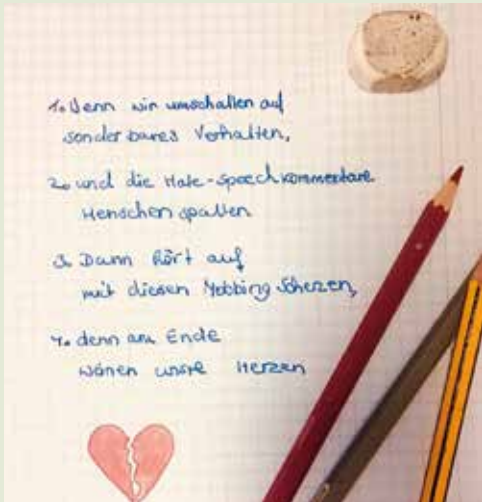 1. Wenn wir umschalten auf
sonderbares Verhalten,
2. und die Hate-speechkommentare
Menschen spalten
3. Dann hört auf
mit diesen Mobbing Scherzen,
4. denn am Ende
wänen unsre Herzen